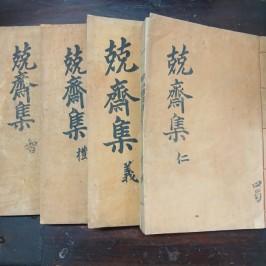 兢齋集 仁
兢齋集 義
兢齋集 禮
兢齋集 智